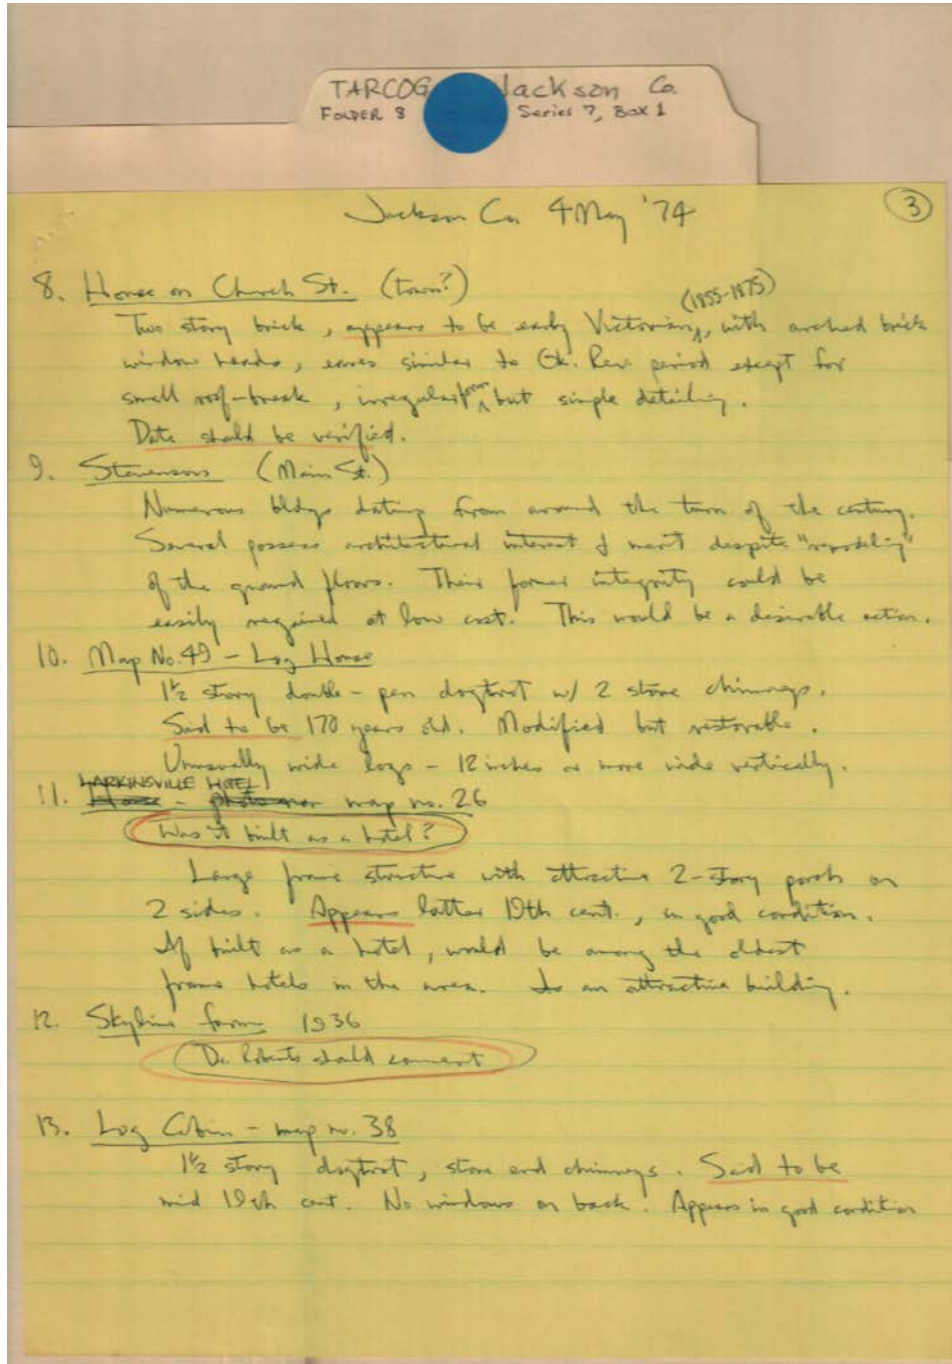 TARCOG Jackson Co.
FOLDER 8 Series 7, Box 1
Jackson Co. 4 May '74 3
8. House on Church St. (town?)
(1855-1875)
Two story brick, appears to be early Victorian, with arched brick
window heads, eaves similar to Gk. Rev. period except for
small roof-break, irregular form but simple detailing.
Date should be verified.
9. Stevenson (Main St.)
Numerous bldgs dating from around the turn of the century.
Several possess architectural interest & merit despite "remodeling"
of the ground floors. Their former integrity could be
easily regained at low cost. This would be a desirable action.
10. Map No. 49 - Log House
1½ story double-pen dogtrot w/ 2 stone chimneys.
Said to be 170 years old. Modified but restorable.
Unusually wide logs - 12 inches or more wide vertically.
LARKINSVILLE HOTEL
11. House - photo map no. 26
Was it built as a hotel?
Large frame structure with attractive 2-story porch on
2 sides. Appears latter 19th cent., in good condition.
If built as a hotel, would be among the oldest
frame hotels in the area. Is an attractive building.
12. Skyline farms 1936
Dr. Roberts should comment
13. Log Cabin - map no. 38
1½ story dogtrot, stone end chimneys. Said to be
mid 19th cent. No windows on back. Appears in good condition